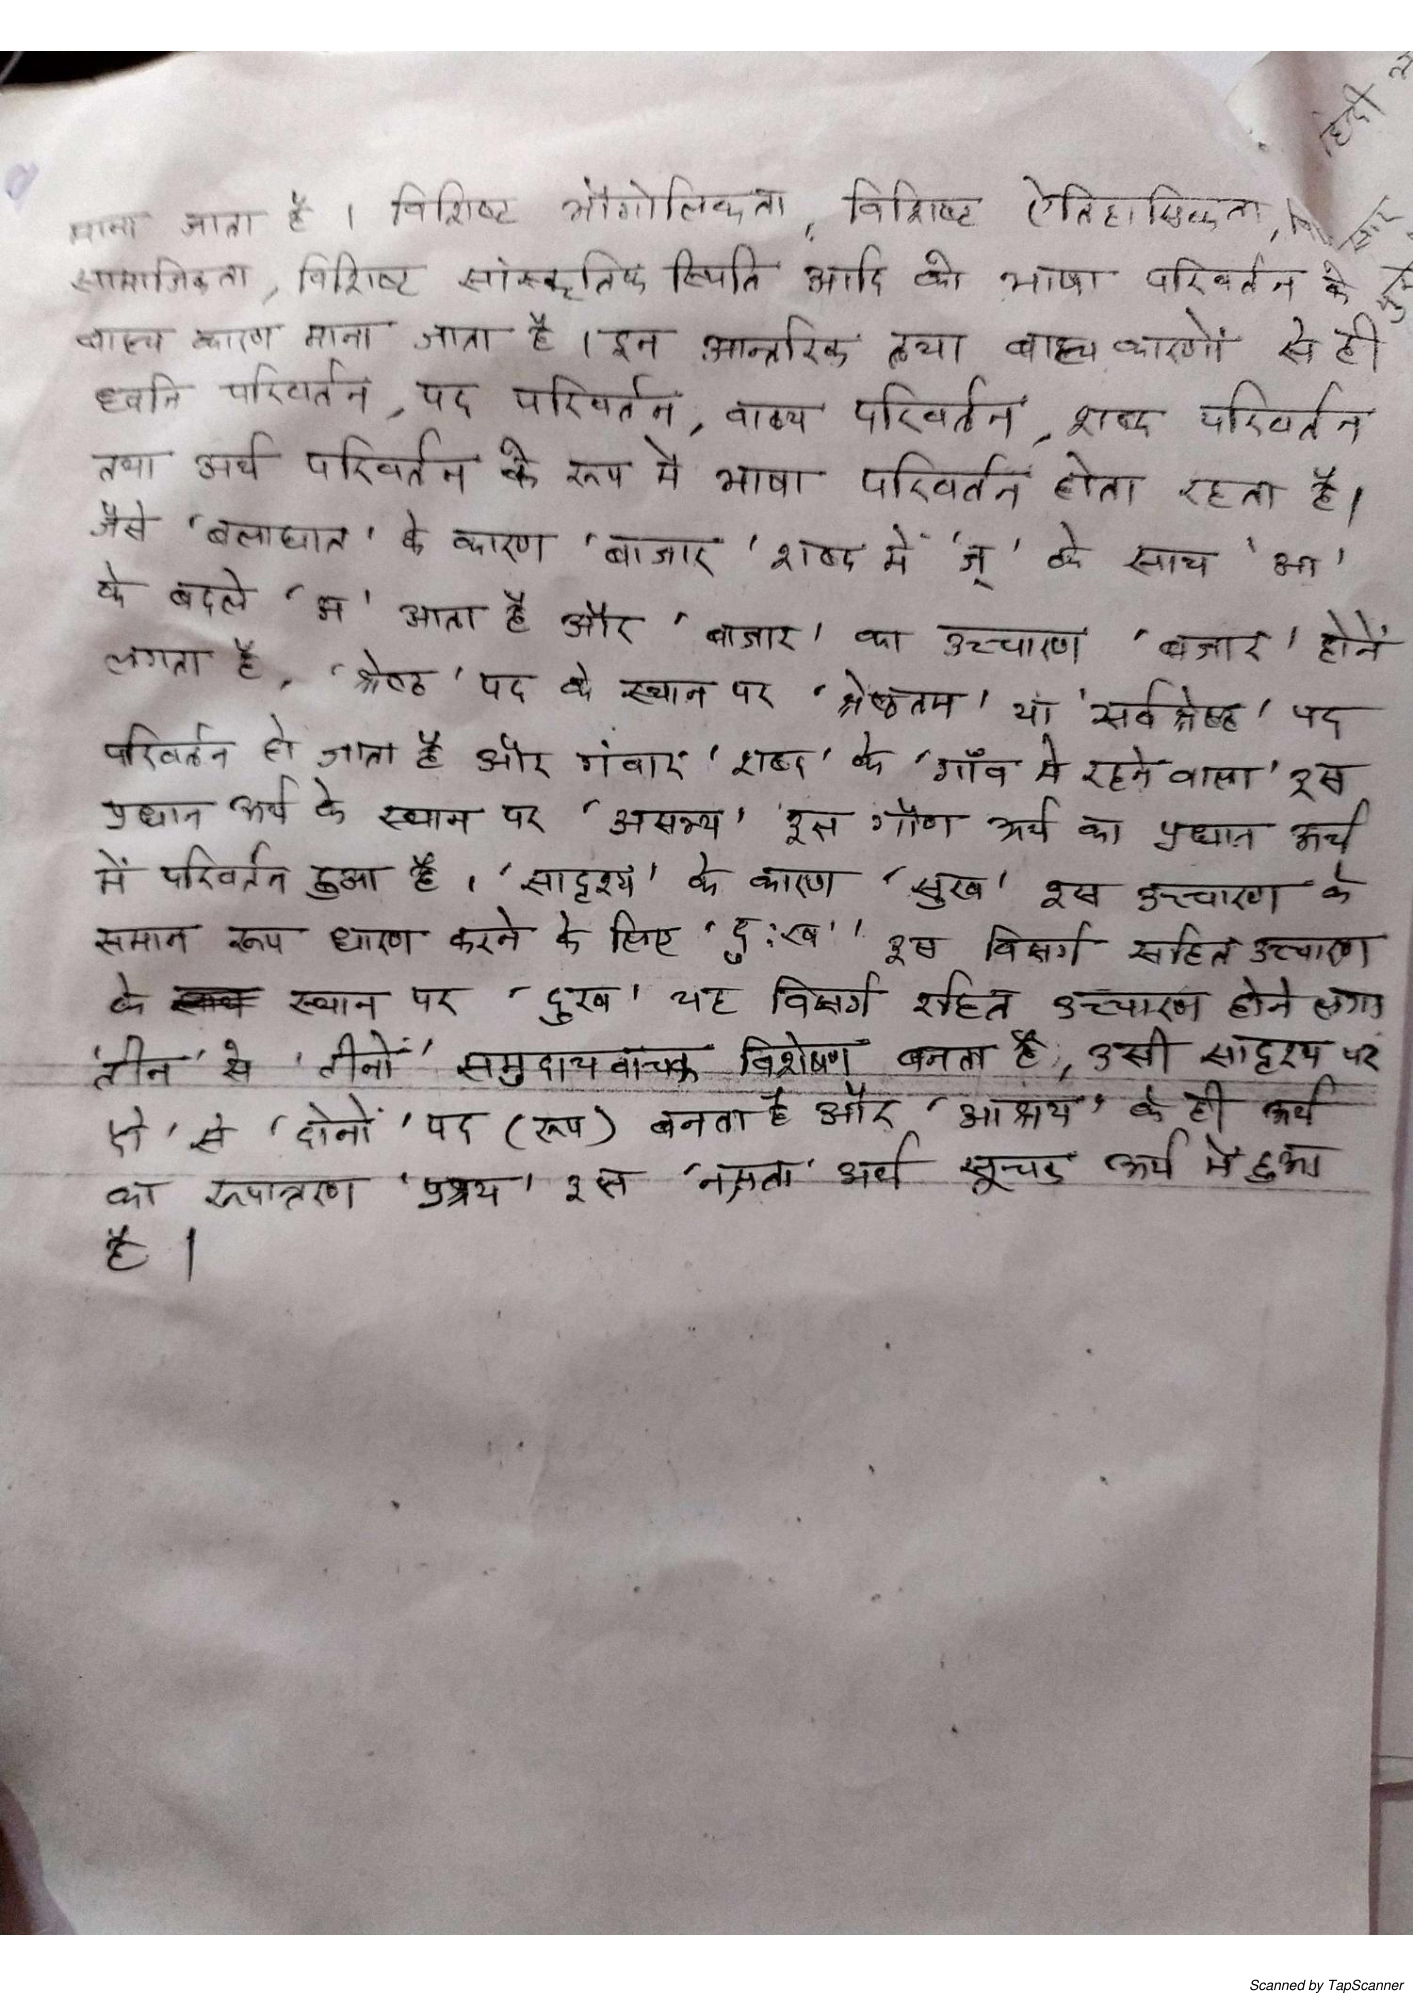 माना जाता है । विशिष्ट भौगोलिकता, विशिष्ट ऐतिहासिकता,
सामाजिकता, विशिष्ट सांस्कृतिक स्थिति आदि को भाषा परिवर्तन के
बाह्य कारण माना जाता है । इन आन्तरिक तथा बाह्य कारणों से ही
ध्वनि परिवर्तन, पद परिवर्तन, वाक्य परिवर्तन, शब्द परिवर्तन
तथा अर्थ परिवर्तन के रूप में भाषा परिवर्तन होता रहता है।
जैसे 'बलाघात' के कारण 'बाजार' शब्द में 'ज्' के साथ 'आ'
के बदले 'अ' आता है और 'बाजार' का उच्चारण 'बजार' होनें
लगता है, 'श्रेष्ठ' पद के स्थान पर 'श्रेष्ठतम' या 'सर्वश्रेष्ठ' पद
परिवर्तन हो जाता है और गंवार 'शब्द' के 'गाँव मे रहने वाला' इस
प्रधान अर्थ के स्थान पर 'असभ्य' इस गौण अर्थ का प्रधान अर्थ
में परिवर्तन हुआ है । 'सादृश्य' के कारण 'सुख' इस उच्चारण के
समान रूप धारण करने के लिए 'दुःख' इस विसर्ग सहित उच्चारण
के स्थान पर 'दुख' यह विसर्ग रहित उच्चारण होने लगा
'तीन' से 'तीनों' समुदायवाचक विशेषण बनता है, उसी सादृश्य पर
से 'दोनों' पद (रूप) बनता है और 'आश्रय' के ही अर्थ
का रूपान्तरण 'प्रश्रय' इस 'नम्रता' अर्थ सूचक अर्थ में हुआ
है ।
हिन्दी
Scanned by TapScanner